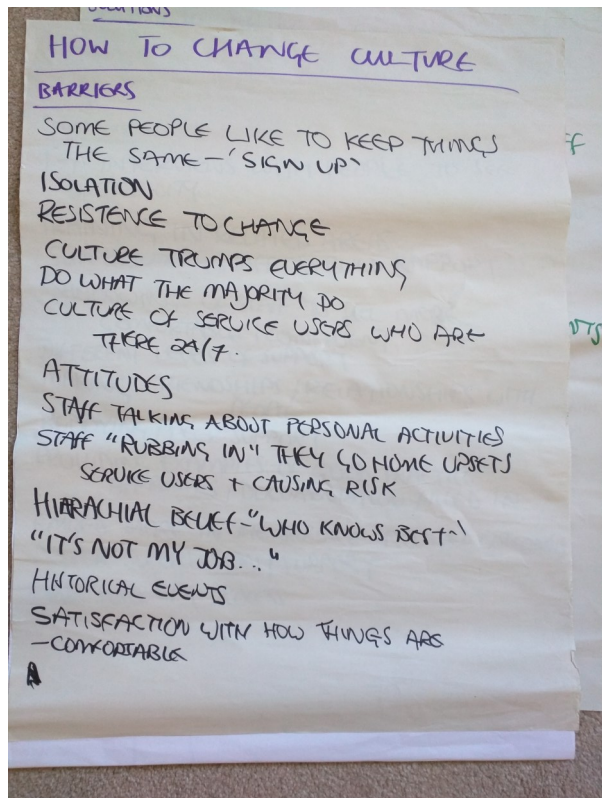 SOLUTIONS
HOW TO CHANGE CULTURE
BARRIERS
SOME PEOPLE LIKE TO KEEP THINGS
THE SAME - 'SIGN UP'
ISOLATION
RESISTENCE TO CHANGE
CULTURE TRUMPS EVERYTHING
DO WHAT THE MAJORITY DO
CULTURE OF SERVICE USERS WHO ARE
THERE 24/7.
ATTITUDES
STAFF TALKING ABOUT PERSONAL ACTIVITIES
STAFF "RUBBING IN" THEY GO HOME UPSETS
SERVICE USERS + CAUSING RISK
HIERACHIAL BELIEF - "WHO KNOWS BEST"
"IT'S NOT MY JOB..."
HISTORICAL EVENTS
SATISFACTION WITH HOW THINGS ARE
- COMFORTABLE